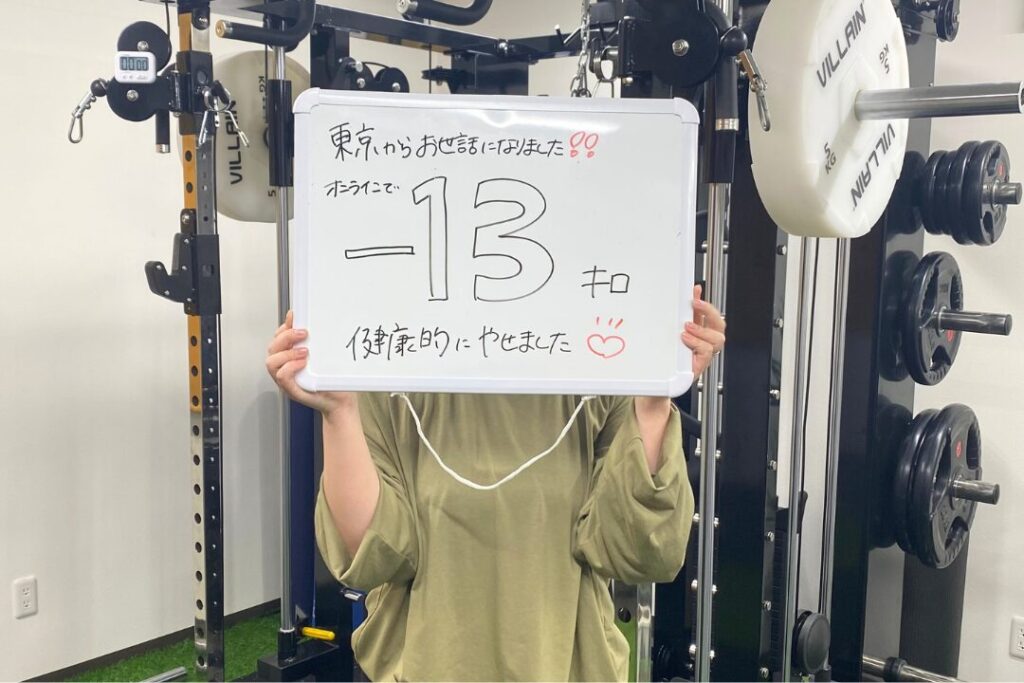 東京からお世話になりました!!
オンラインで
-13
キロ
健康的にやせました
VILLAIN
5
KG
VILLAIN
VILLAIN
5
KG
00:00